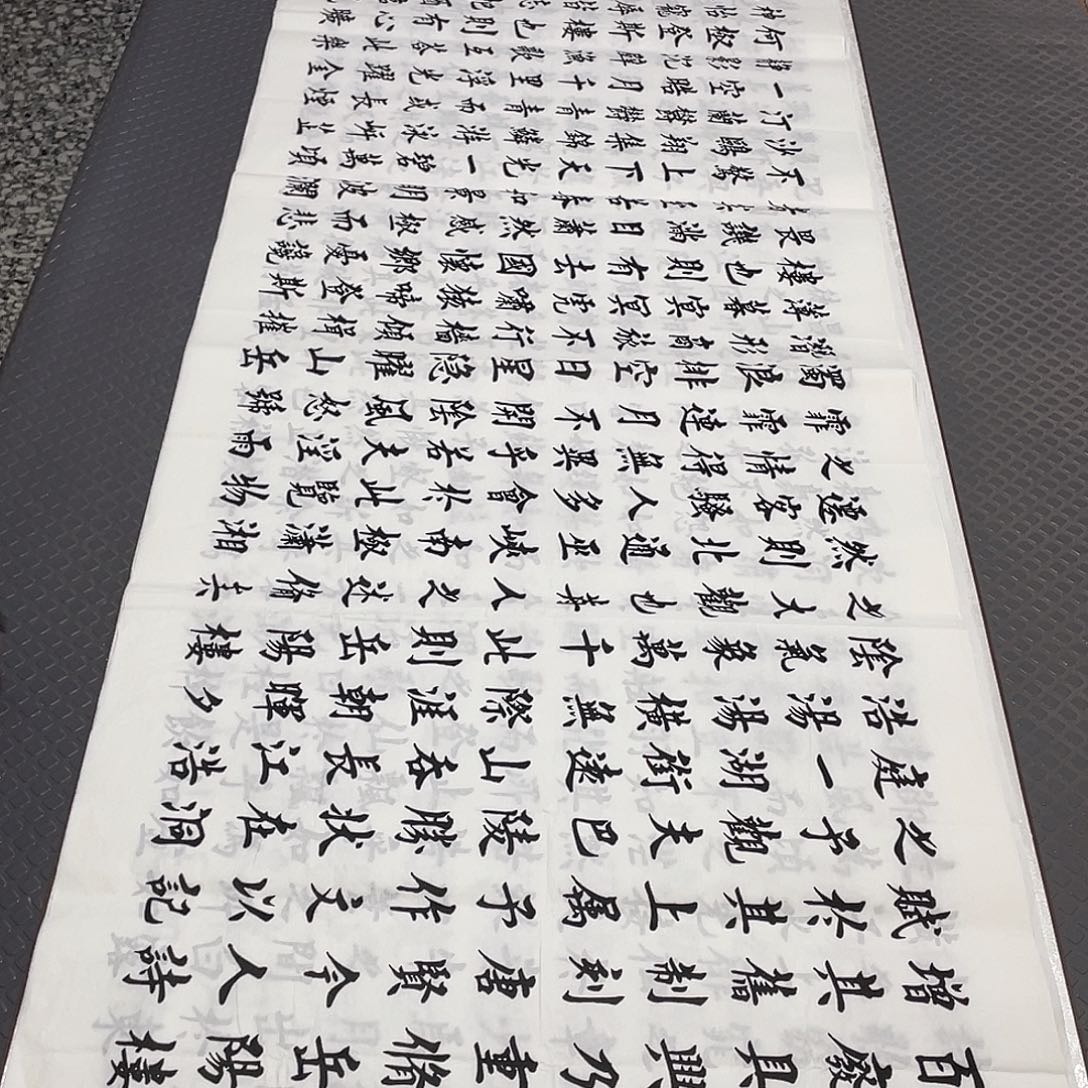 百廢具興乃重脩岳陽樓
增其舊制刻唐賢今人詩
賦於其上屬予作文以記
之予觀夫巴陵勝狀在洞
庭一湖銜遠山吞長江浩
浩湯湯橫無際涯朝暉夕
陰氣象萬千此則岳陽樓
之大觀也前人之述備矣
然則北通巫峽南極瀟湘
遷客騷人多會於此覽物
之情得無異乎若夫淫雨
霏霏連月不開陰風怒號
濁浪排空日星隱曜山岳
潛形商旅不行檣傾楫摧
薄暮冥冥虎嘯猿啼登斯
樓也則有去國懷鄉憂讒
畏譏滿目蕭然感極而悲
者矣至若春和景明波瀾
不驚上下天光一碧萬頃
沙鷗翔集錦鱗游泳岸芷
汀蘭鬱鬱青青而或長煙
一空皓月千里浮光躍金
靜影沉璧漁歌互答此樂
何極登斯樓也則有心曠
神怡寵辱皆忘